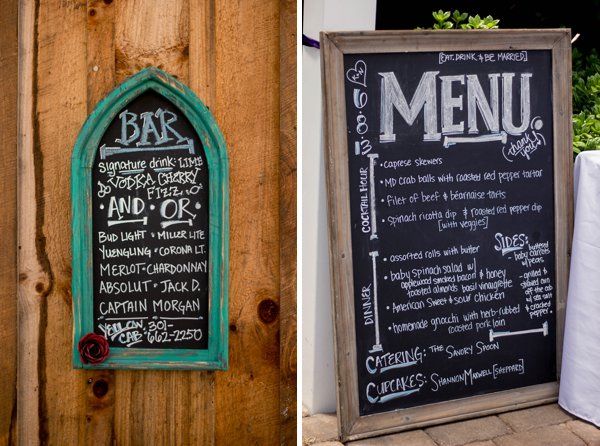 BAR
Signature drink: LIME
VODKA CHERRY
FIZZ
AND OR
BUD LIGHT & MILLER LITE
YUENGLING CORONA LT.
MERLOT CHARDONNAY
ABSOLUT JACK D.
CAPTAIN MORGAN
YELLOW CAB: 301-
662-2250
[EAT, DRINK & BE MARRIED]
K+N
6·08·13
MENU.
(thank you!)
COCKTAIL HOUR
• caprese skewers
• MD crab balls with roasted red pepper tartar
• filet of beef & béarnaise tarts
• spinach ricotta dip & roasted red pepper dip
[with veggies]
DINNER
• assorted rolls with butter
• baby spinach salad w/
applewood smoked bacon & honey
toasted almonds basil vinaigrette
• American sweet & sour chicken
• homemade gnocchi with herb-rubbed
roasted pork loin
SIDES:
buttered
baby carrots
w/ peas
- grilled &
shaved corn
off the cob
w/ sea salt
& cracked
pepper
CATERING: THE SAVORY SPOON
CUPCAKES: SHANNON MAXWELL [SHEPPARD]